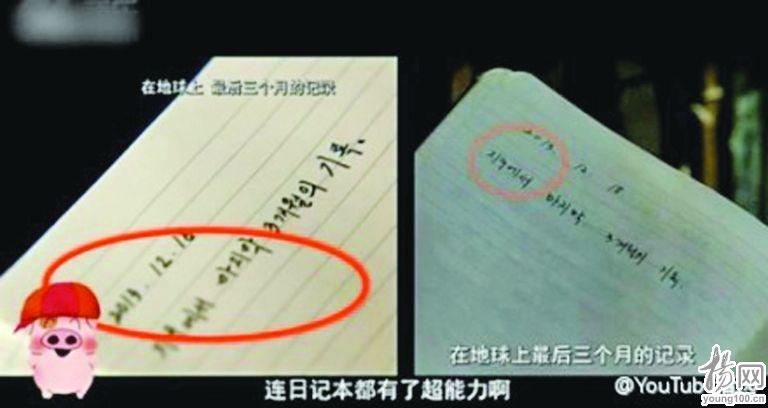 在地球上 最后三个月的记录
2013. 12. 18
지구에서 마지막 3개월의 기록.
2013. 12 18
지구에서 마지막 3개월의 기록.
在地球上最后三个月的记录
连日记本都有了超能力啊
@YouTube
扬网
young100.cn